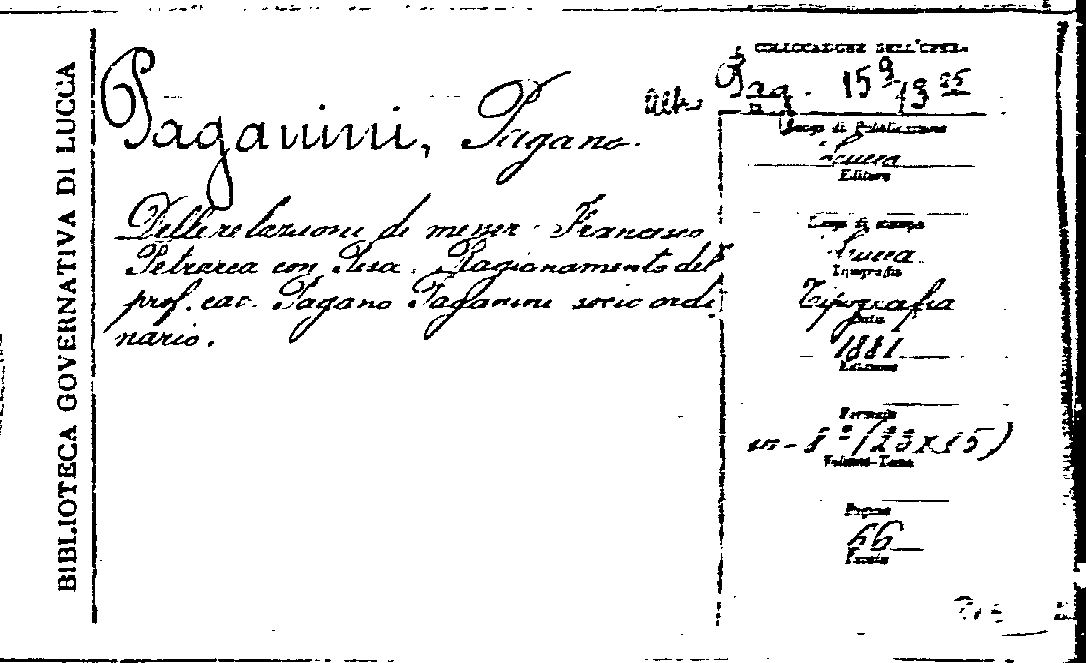 BIBLIOTECA GOVERNATIVA DI LUCCA
Paganini, Pagano.
Delle relazioni di messer Francesco
Petrarca con Pisa. Ragionamento del
prof. cav. Pagano Paganini socio ordi
nario.
COLLOCAZIONE DELL'OPERA
Luogo di Pubblicazione
Lucca
Editore
Luogo di stampa
Lucca
Tipografia
Tipografia
Data
1881
Edizione
Formato
in-8º (23x15)
Volume-Tomo
Pagine
66